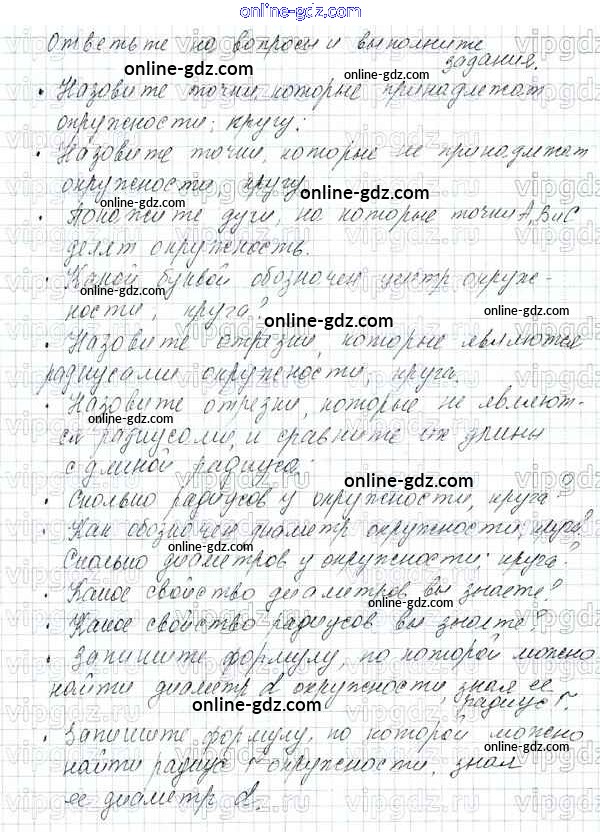 online-gdz.com
Ответьте на вопросы и выполните
задания.
online-gdz.com
• Назовите точки, которые принадлежат
окружности; кругу;
online-gdz.com
• Назовите точки, которые не принадлежат
окружности, кругу
online-gdz.com
• Покажите дуги, на которые точки А, В и С
делят окружность.
online-gdz.com
• Какой буквой обозначен центр окруж-
ности; круга?
online-gdz.com
• Назовите отрезки, которые являются
радиусами окружности; круга.
online-gdz.com
• Назовите отрезки, которые не являют-
ся радиусами, и сравните их длины
online-gdz.com
с длиной радиуса;
online-gdz.com
• Сколько радиусов у окружности, круга?
• Как обозначен диаметр окружности, круга?
online-gdz.com
Сколько диаметров у окружности; круга?
• Какое свойство диаметров вы знаете?
online-gdz.com
• Какое свойство радиусов вы знаете?
• Запишите формулу, по которой можно
online-gdz.com
найти диаметр d окружности, зная ее
радиус r.
online-gdz.com
• Запишите формулу, по которой можно
online-gdz.com
найти радиус r окружности, зная
ее диаметр d.
online-gdz.com